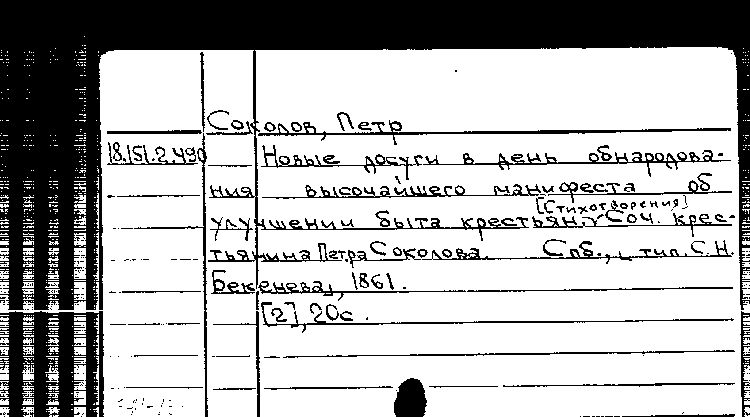 Соколов, Петр
18.151.2.490
Новые досуги в день обнародова-
ния высочайшего манифеста об
[Стихотворения]
улучшении быта крестьян. Соч. крес-
тьянина Петра Соколова. Спб., тип. С.Н.
Бекенева, 1861.
[2], 20с.